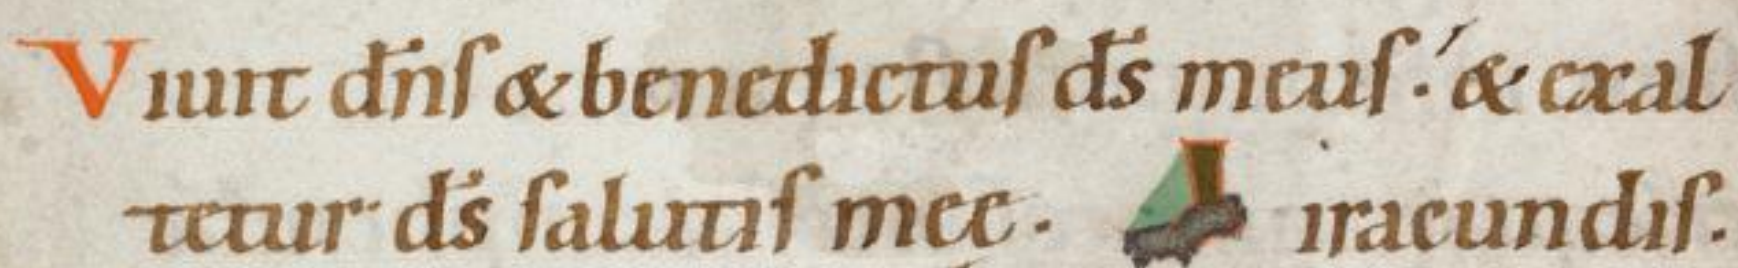 Viuit dn̄s & benedictus ds̄ meus. & exal
tetur ds̄ salutis mee. iracundis.